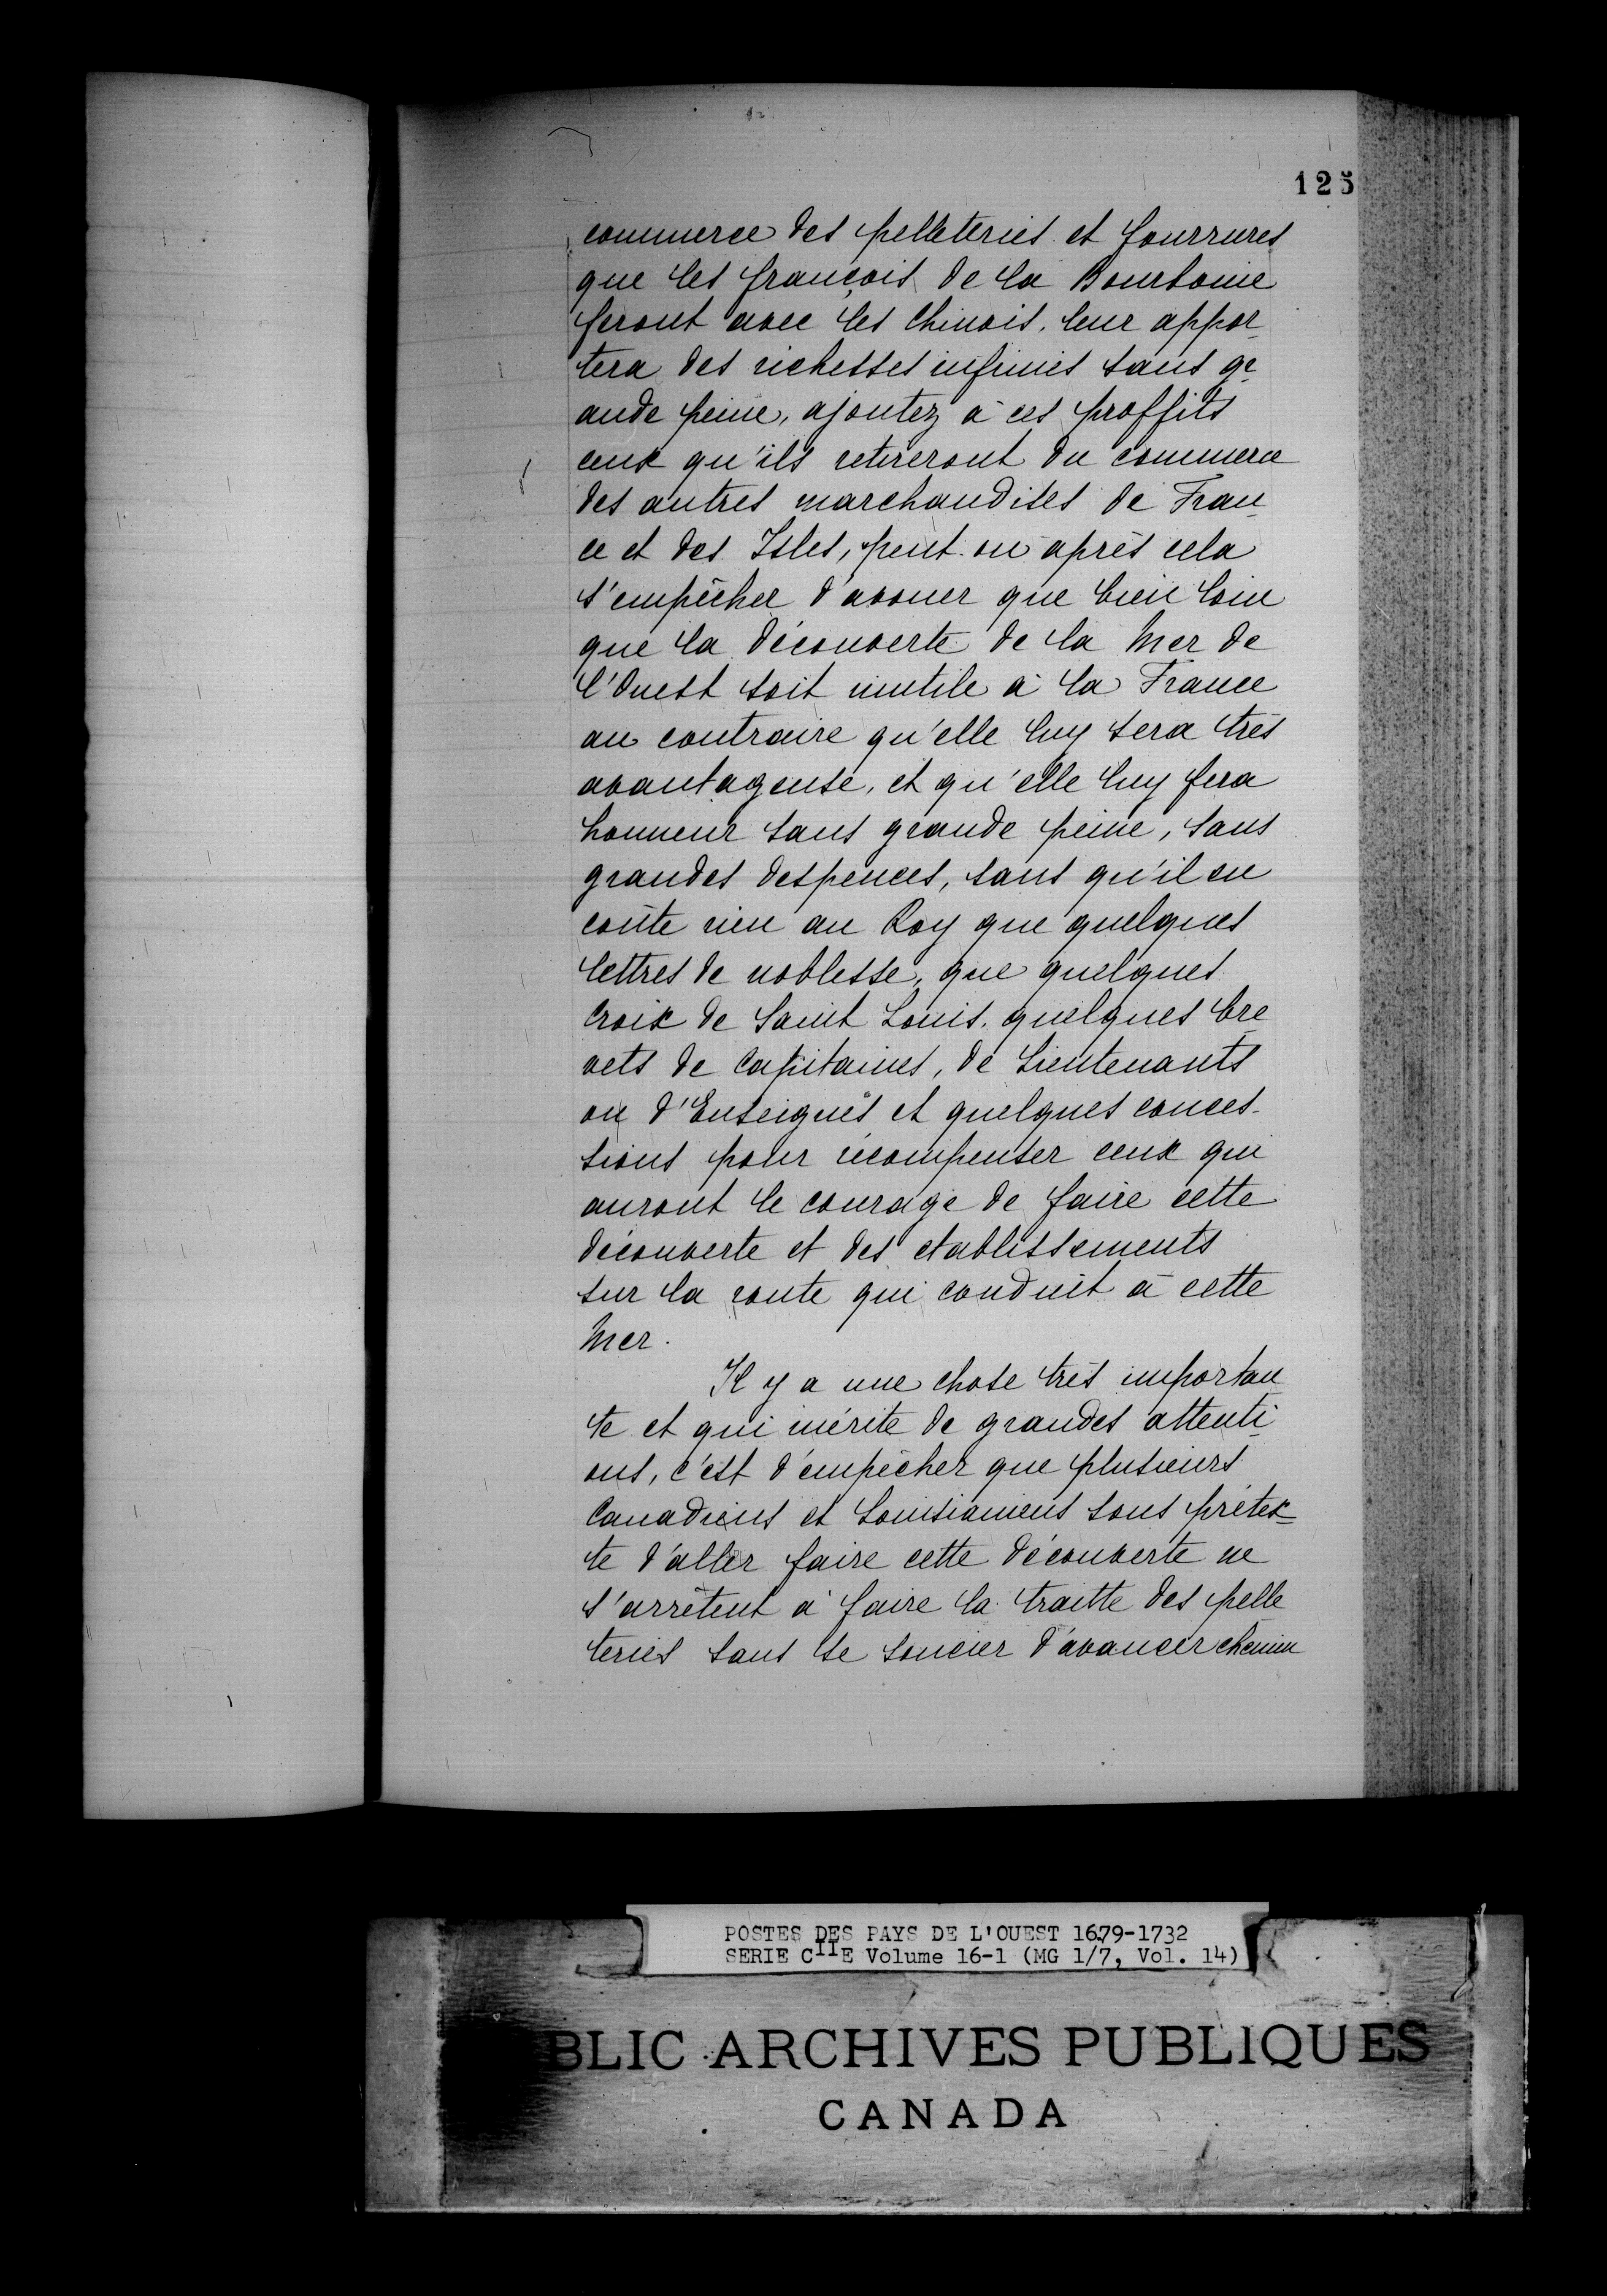 125
commerce des pelleteries et fourrures
que les françois de la Bourbonie
feront avec les Chinois, leur appor
tera des richesses infinies sans gr
ande peine, ajoutez à ces proffits
ceux qu'ils retireront du commerce
des autres marchandises de Fran
ce et des Isles, peut-on après cela
s'empêcher d'avouer que bien loin
que la découverte de la Mer de
l'Ouest soit inutile à la France
au contraire qu'elle luy sera très
avantageuse, et qu'elle luy fera
honneur sans grande peine, sans
grandes despences, sans qu'il en
coûte rien au Roy que quelques
lettres de noblesse, que quelques
Croix de Saint Louis, quelques bre
vets de Capitaines, de Lieutenants
ou d'Enseignes et quelques conces-
sions pour récompenser ceux qui
auront le courage de faire cette
découverte et des etablissements
sur la route qui conduit à cette
Mer.
Il y a une chose très importan
te et qui mérite de grandes attenti
ons, c'est d'empêcher que plusieurs
Canadiens et Louisianiens sous prétex-
te d'aller faire cette découverte ne
s'arrêtent à faire la traitte des pelle
teries sans se soucier d'avancer chemin
POSTES DES PAYS DE L'OUEST 1679-1732
SERIE C11E Volume 16-1 (MG 1/7, Vol. 14)
BLIC ARCHIVES PUBLIQUES
CANADA